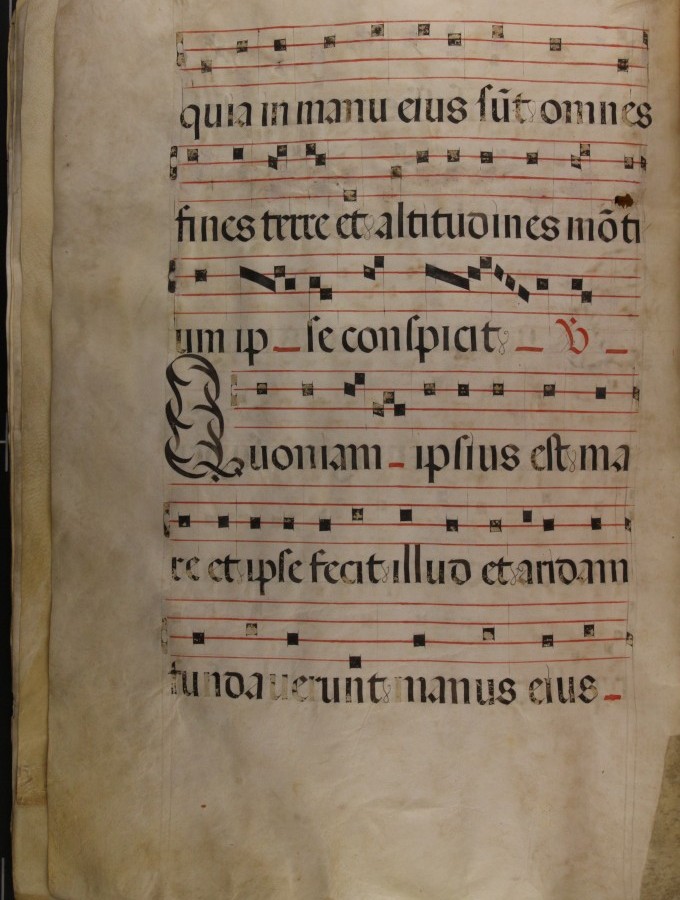 quia in manu eius sũt omnes
fines terre et altitudines mõti
um ip se conspicit ℣
Quoniam ipsius est ma
re et ipse fecit illud et aridam
fundauerunt manus eius